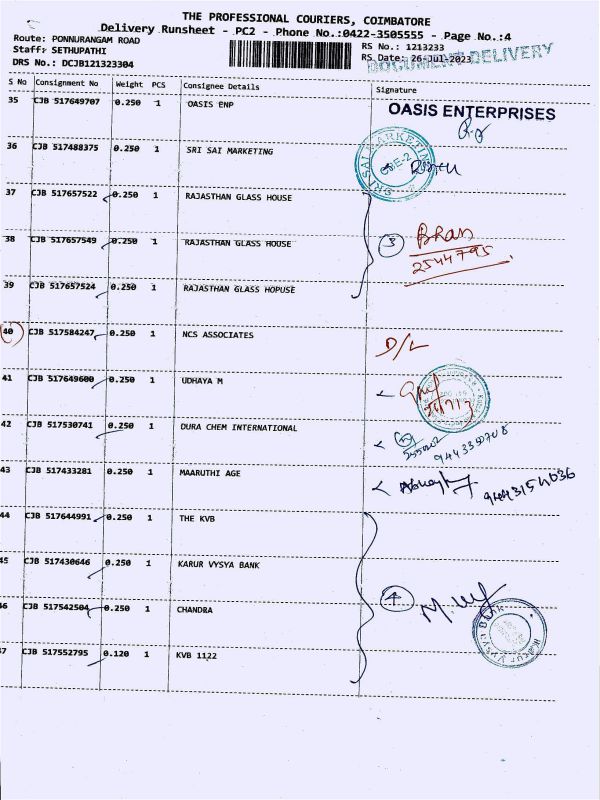 THE PROFESSIONAL COURIERS, COIMBATORE
Delivery Runsheet - PC2 - Phone No.:0422-3505555 - Page No.:4
Route: PONNURANGAM ROAD
RS No.: 1213233
Staff: SETHUPATHI
RS Date: 26-Jul-2023
DOCUMENT DELIVERY
DRS No.: DCJB121323304
S No Consignment No Weight PCS Consignee Details Signature
35 CJB 517649707 0.250 1 OASIS ENP OASIS ENTERPRISES
36 CJB 517488375 0.250 1 SRI SAI MARKETING
SRI SAI MARKETING
CBE-2
37 CJB 517657522 0.250 1 RAJASTHAN GLASS HOUSE
38 CJB 517657549 0.250 1 RAJASTHAN GLASS HOUSE 3
2544795
39 CJB 517657524 0.250 1 RAJASTHAN GLASS HOPUSE
40 CJB 517584247 0.250 1 NCS ASSOCIATES D/L
41 CJB 517649600 0.250 1 UDHAYA M
42 CJB 517530741 0.250 1 DURA CHEM INTERNATIONAL
43 CJB 517433281 0.250 1 MAARUTHI AGE
44 CJB 517644991 0.250 1 THE KVB
45 CJB 517430646 0.250 1 KARUR VYSYA BANK
46 CJB 517542504 0.250 1 CHANDRA 4
Karur Vysya Bank
47 CJB 517552795 0.120 1 KVB 1122